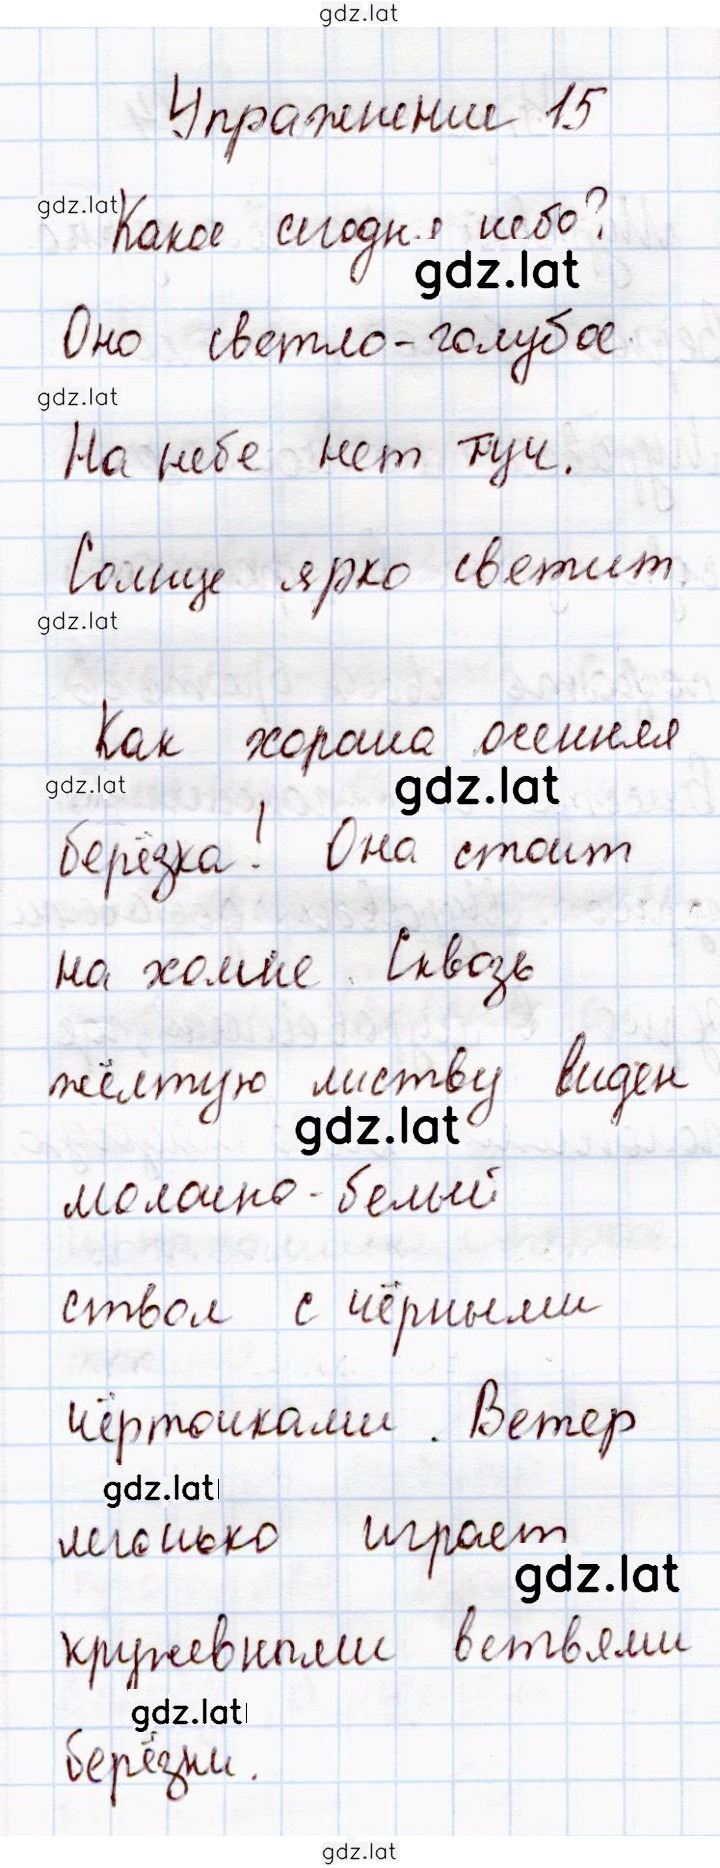 gdz.lat
Упражнение 15
gdz.lat
Какое сегодня небо?
gdz.lat
Оно светло-голубое.
gdz.lat
На небе нет туч.
Солнце ярко светит
gdz.lat
Как хороша осенняя
gdz.lat gdz.lat
берёзка! Она стоит
на холме. Сквозь
жёлтую листву виден
gdz.lat
молочно-белый
ствол с чёрными
чёрточками. Ветер
gdz.lat
легонько играет
gdz.lat
кружевными ветвями
gdz.lat
берёзки.
gdz.lat